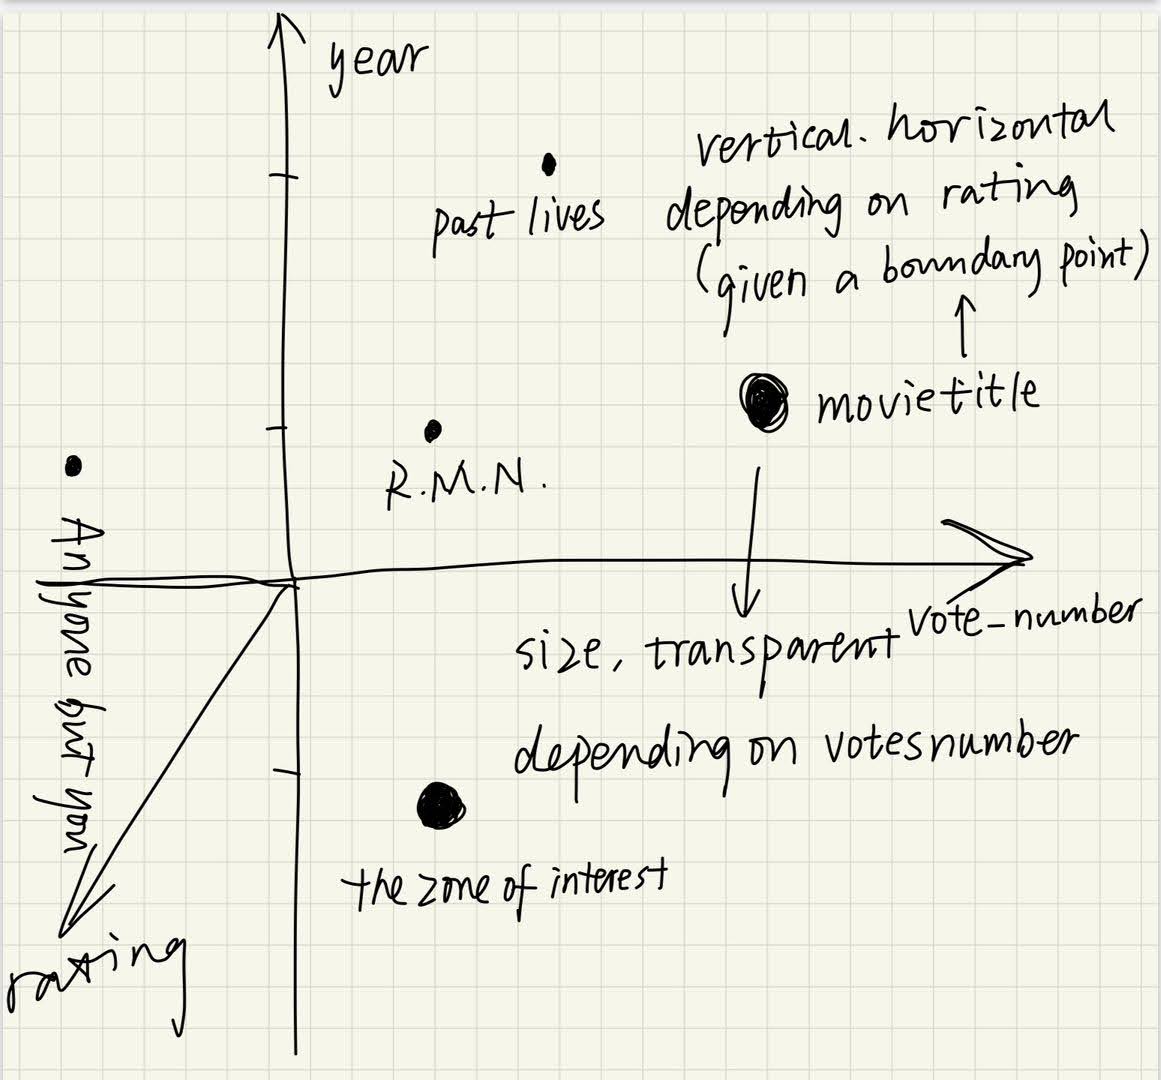 year
vertical. horizontal
depending on rating
(given a boundary point)
past lives
movietitle
R.M.N.
Anyone but you
vote_number
size, transparent
depending on votesnumber
the zone of interest
rating